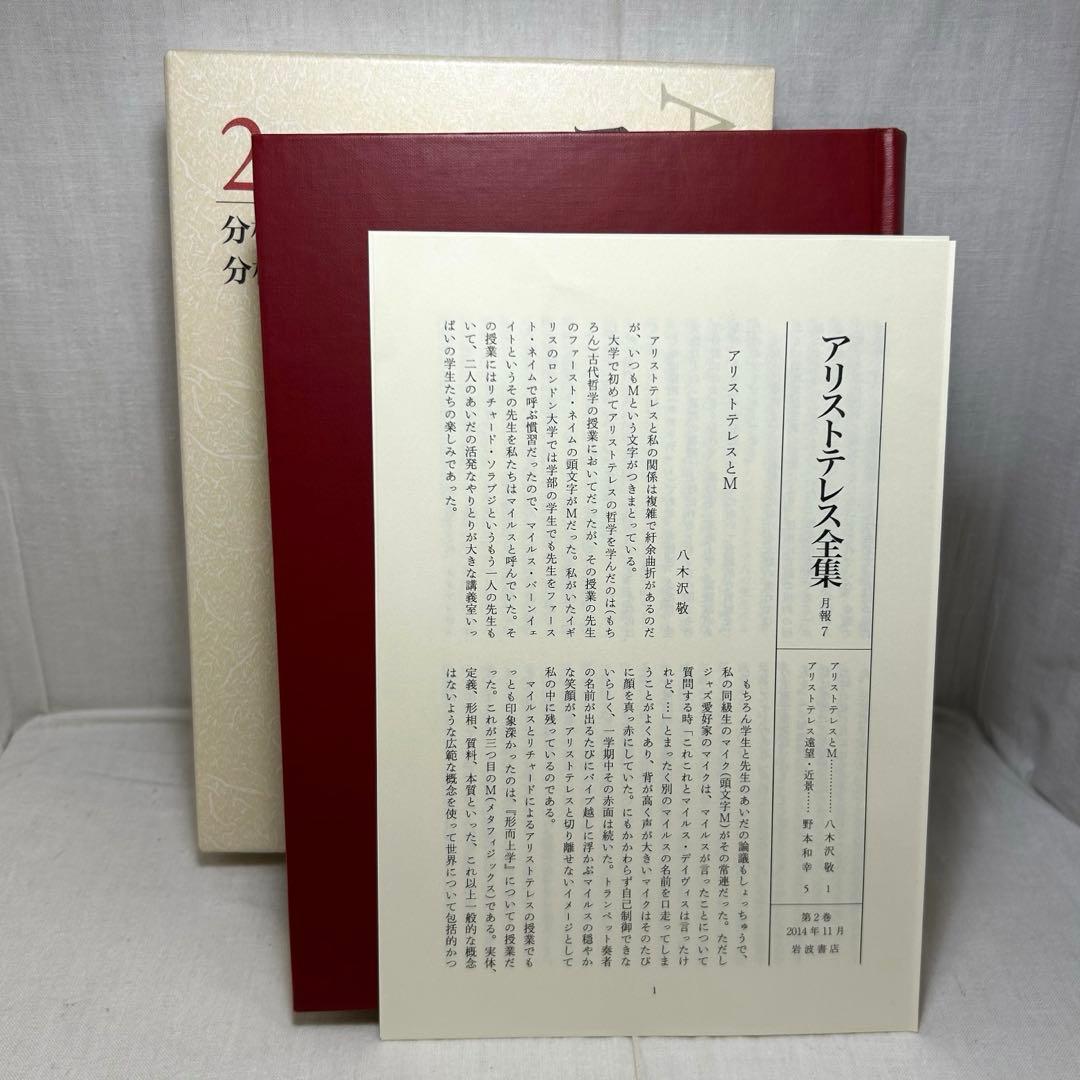 2
分
分
アリストテレス全集 月報 7
アリストテレスとM………… 八木沢 敬 1
アリストテレス遠望・近景…… 野本和幸 5
第2巻
2014年11月
岩波書店
アリストテレスとM
八木沢 敬
アリストテレスと私の関係は複雑で紆余曲折があるのだ
が、いつもMという文字がつきまとっている。
大学で初めてアリストテレスの哲学を学んだのは(もち
ろん)古代哲学の授業においてだったが、その授業の先生
のファースト・ネイムの頭文字がMだった。私がいたイギ
リスのロンドン大学では学部の学生でも先生をファース
ト・ネイムで呼ぶ慣習だったので、マイルス・バーンイェ
イトというその先生を私たちはマイルスと呼んでいた。そ
の授業にはリチャード・ソラブジというもう一人の先生も
いて、二人のあいだの活発なやりとりが大きな講義室いっ
ぱいの学生たちの楽しみであった。
もちろん学生と先生のあいだの論議もしょっちゅうで、
私の同級生のマイク(頭文字M)がその常連だった。ただし
ジャズ愛好家のマイクは、マイルスが言ったことについて
質問する時「これこれとマイルス・デイヴィスは言ったけ
れど、…」とまったく別のマイルスの名前を口走ってしま
うことがよくあり、背が高く声が大きいマイクはそのたび
に顔を真っ赤にしていた。にもかかわらず自己制御できな
いらしく、一学期中その赤面は続いた。トランペット奏者
の名前が出るたびにパイプ越しに浮かぶマイルスの穏やか
な笑顔が、アリストテレスと切り離せないイメージとして
私の中に残っているのである。
マイルスとリチャードによるアリストテレスの授業でも
っとも印象深かったのは、『形而上学』についての授業だ
った。これが三つ目のM(メタフィジックス)である。実体、
定義、形相、質料、本質といった、これ以上一般的な概念
はないような広範な概念を使って世界について包括的かつ
1